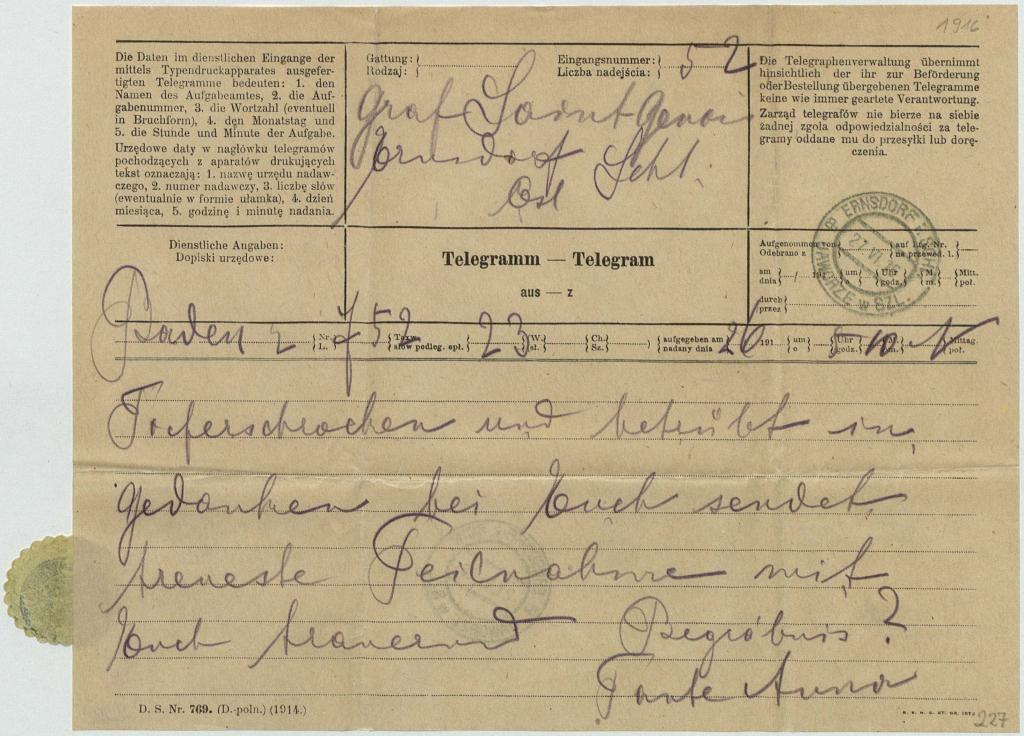 1916
Die Daten im dienstlichen Eingange der
mittels Typendruckapparates ausgefer-
tigten Telegramme bedeuten: 1. den
Namen des Aufgabeamtes, 2. die Auf-
gabenummer, 3. die Wortzahl (eventuell
in Bruchform), 4. den Monatstag und
5. die Stunde und Minute der Aufgabe.
Urzędowe daty w nagłówku telegramów
pochodzących z aparatów drukujących
tekst oznaczają: 1. nazwę urzędu nadaw-
czego, 2. numer nadawczy, 3. liczbę słów
(ewentualnie w formie ułamka), 4. dzień
miesiąca, 5. godzinę i minutę nadania.
Gattung: Eingangsnummer: 52
Rodzaj: Liczba nadejścia:
Graf Saint Genois
Ernsdorf Schl.
Ost
Die Telegraphenverwaltung übernimmt
hinsichtlich der ihr zur Beförderung
oder Bestellung übergebenen Telegramme
keine wie immer geartete Verantwortung.
Zarząd telegrafów nie bierze na siebie
żadnej zgola odpowiedzialności za tele-
gramy oddane mu do przesyłki lub dorę-
czenia.
Dienstliche Angaben:
Dopiski urzędowe:
Telegramm — Telegram
aus — z
Aufgenommen von auf Ltg.-Nr.
Odebrano z na przewod. l.
am / 191 um Uhr M. Mitt.
dnia o godz. m. poł.
durch
przez
ERNSDORF
JAWORZE w SZL.
27 VI
Baden 2 Nr. 752 Taxw. 23 W. Ch. aufgegeben am 26 191 um 5 Uhr 10 M. N Mittag.
L. słów podleg. opł. sł. Sz. nadany dnia o godz. m. poł.
Tieferschrocken und betrübt in
gedanken bei Euch sendet
treueste Teilnahme mit
Euch trauernd Begräbnis?
Tante Anna
D. S. Nr. 769. (D.-poln.) (1914.)
227